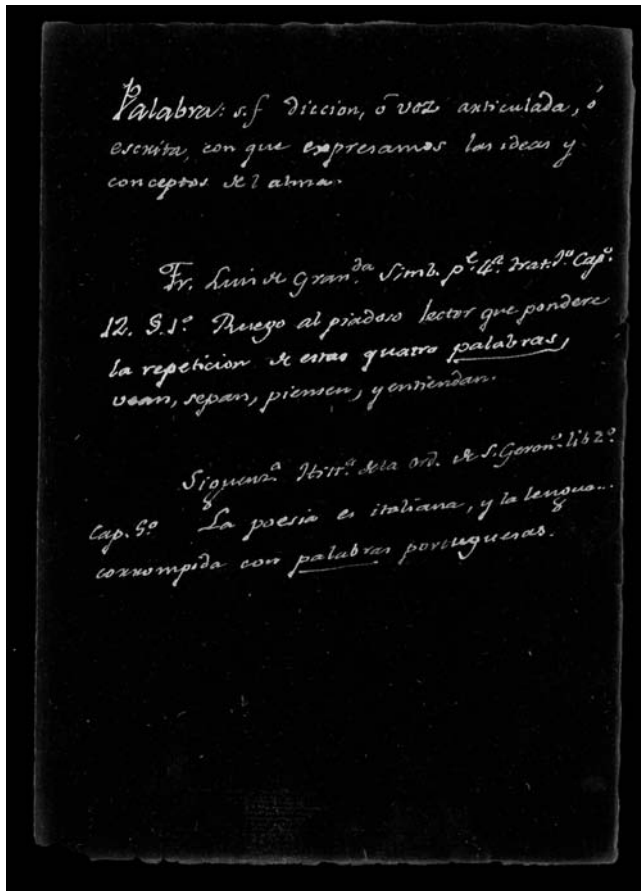 Palabra: s.f diccion, ó voz articulada, ó
escrita, con que expresamos las ideas y
conceptos del alma.
Fr. Luis de Gran.da Simb. p.e 4.a trat. 1.o Cap.o
12. §.1.o Ruego al piadoso lector que pondere
la repeticion de estas quatro palabras,
vean, sepan, piensen, y entiendan.
Siguenz.a Hist.a de la Ord. de S. Geron.o lib 2.o
Cap. 5.o La poesia es italiana, y la lengua
corrompida con palabras portuguesas.